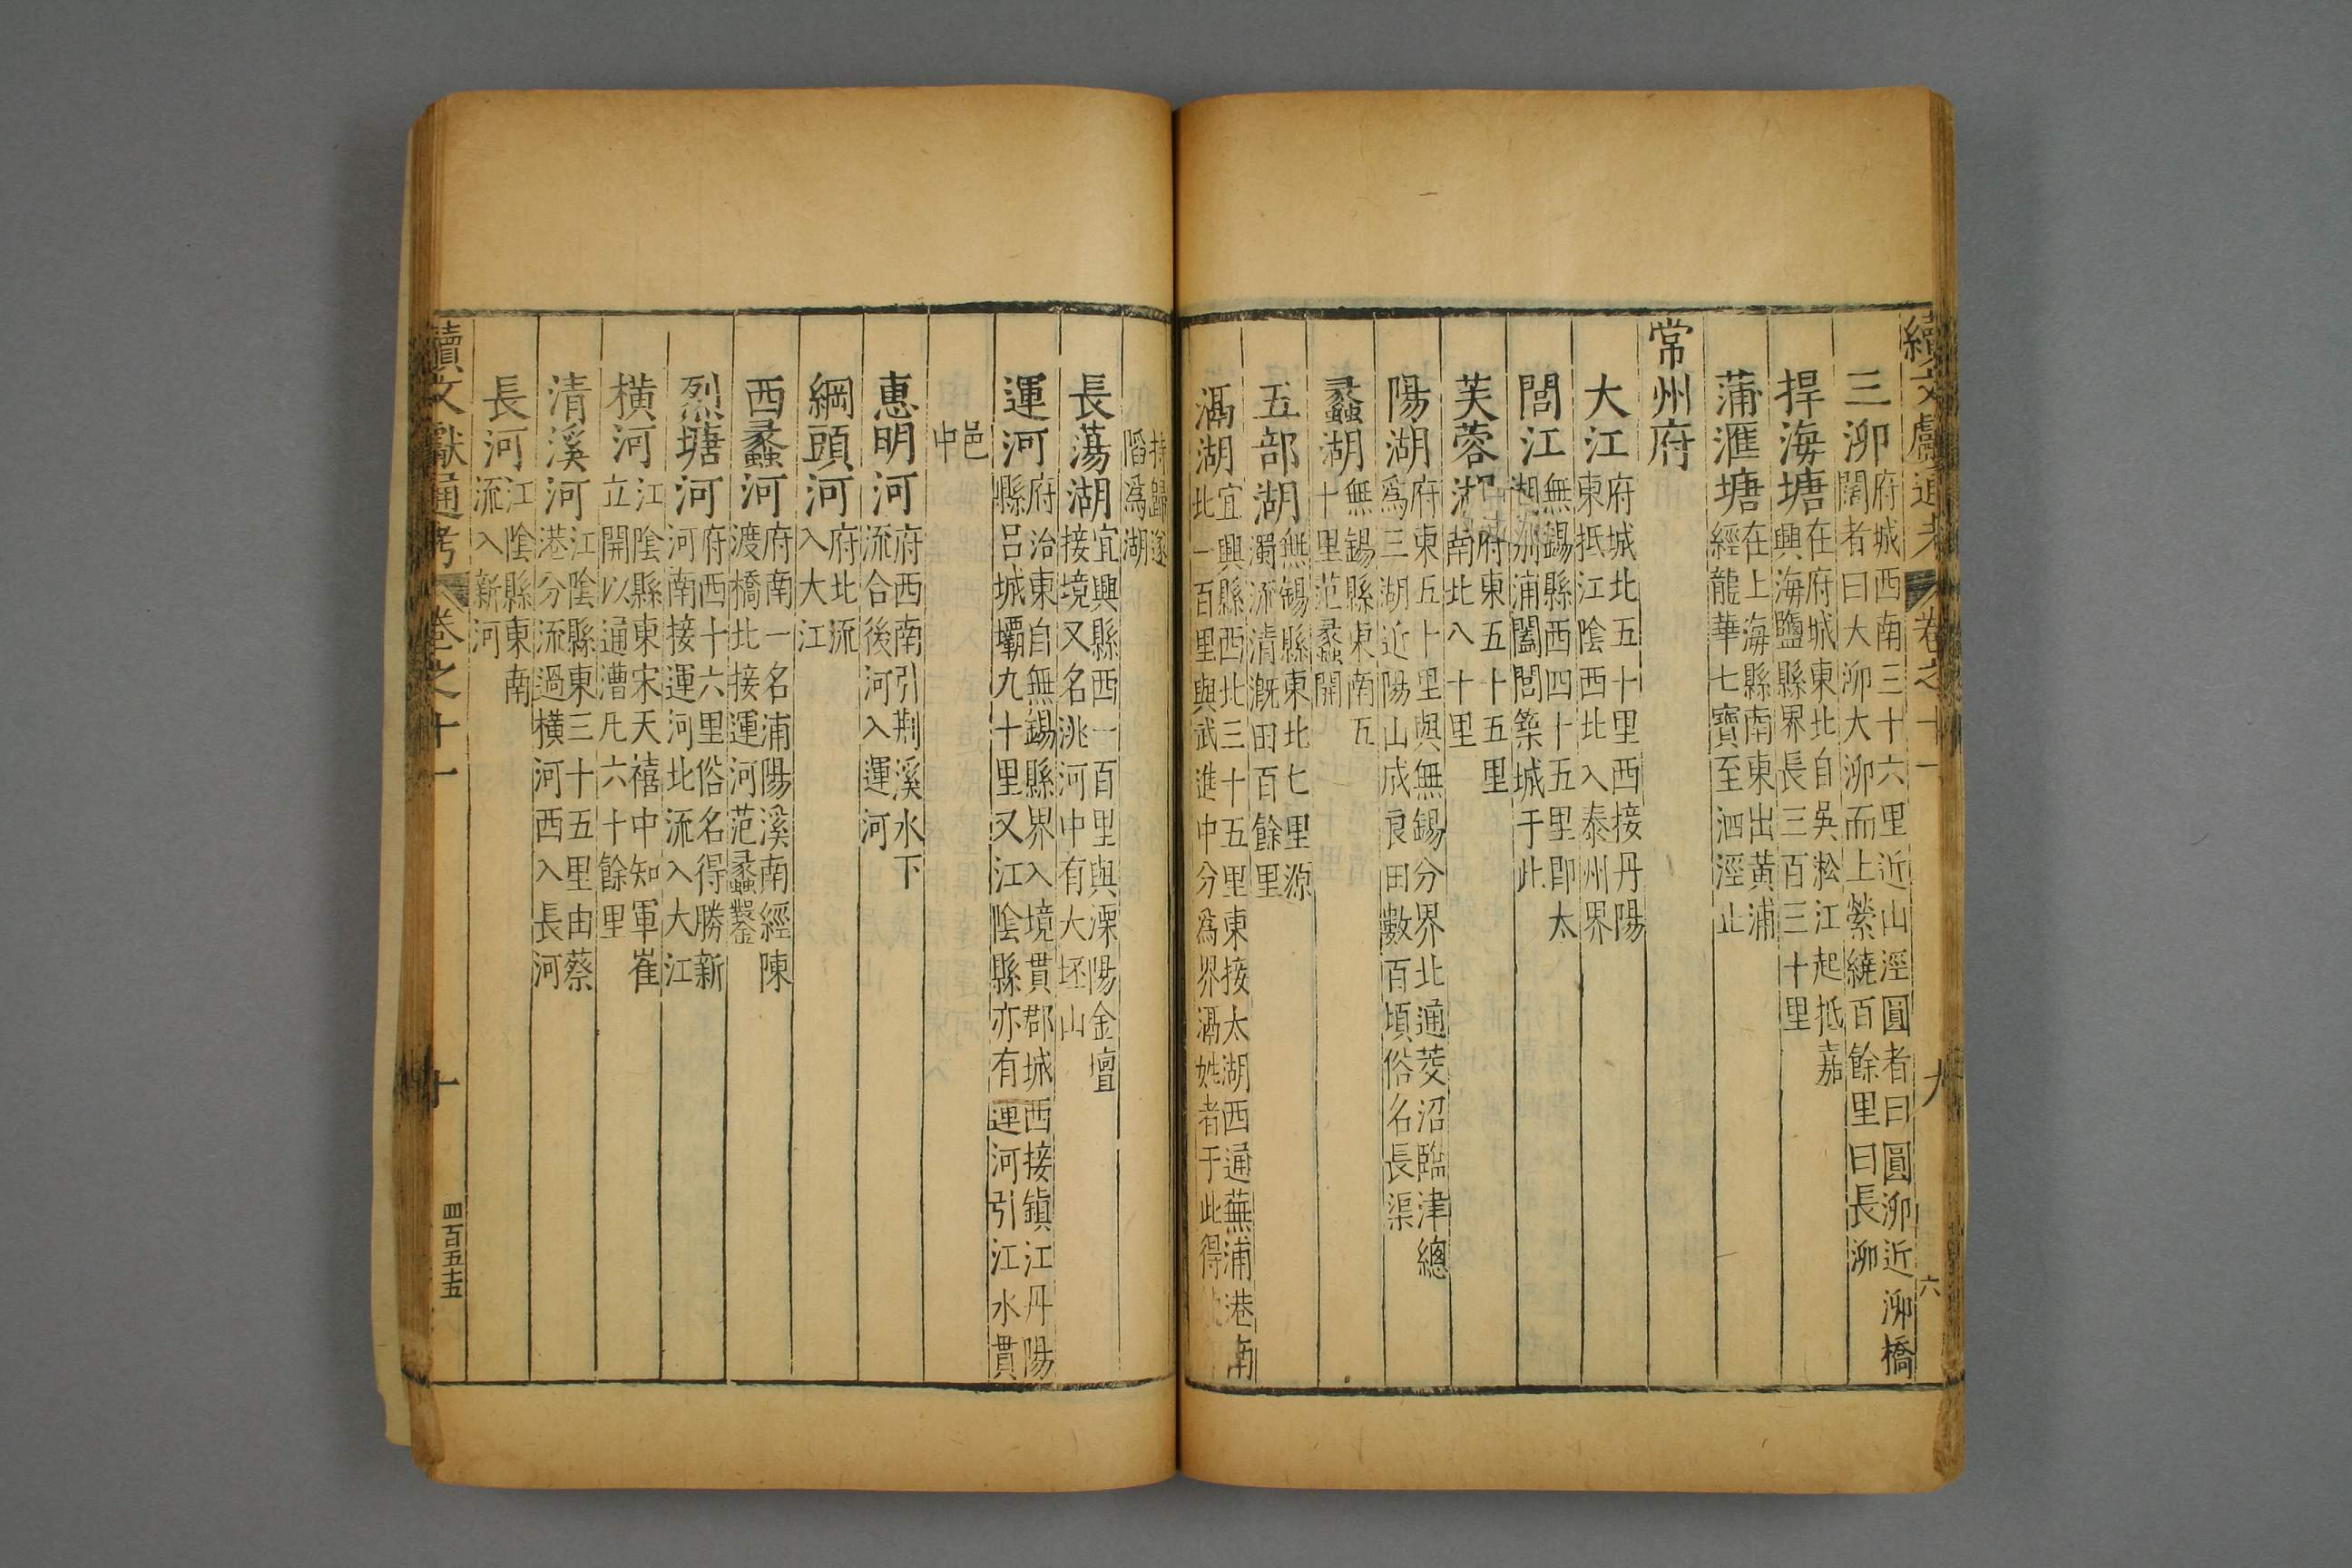 續文獻通考 卷之十一 九 六
三泖府城西南三十六里近山涇圓者曰圓泖近泖橋
闊者曰大泖大泖而上縈繞百餘里曰長泖
捍海塘在府城東北自吳淞江起抵嘉
興海鹽縣界長三百三十里
蒲滙塘在上海縣南東出黃浦
經龍華七寶至泗涇止
常州府
大江府城北五十里西接丹陽
東抵江陰西北入泰州界
閭江無錫縣西四十五里即太
湖別浦闔閭築城于此
芙蓉湖府東五十五里
南北八十里
陽湖府東五十里與無錫分界北通茭沼臨津總
為三湖近陽山成良田數百頃俗名長渠
蠡湖無錫縣東南五
十里范蠡開
五部湖無錫縣東北七里源
濁流清漑田百餘里
滆湖宜興縣西北三十五里東接太湖西通蕪浦港南
北一百里與武進中分為界滆姓者于此得
持歸遂
陷為湖
長蕩湖宜興縣西一百里與溧陽金壇
接境又名洮河中有大坯山
運河府治東自無錫縣界入境貫郡城西接鎮江丹陽
縣呂城壩九十里又江陰縣亦有運河引江水貫
邑
中
惠明河府西南引荆溪水下
流合後河入運河
網頭河府北流
入大江
西蠡河府南一名浦陽溪南經陳
渡橋北接運河范蠡鑿
烈塘河府西十六里俗名得勝新
河南接運河北流入大江
橫河江陰縣東宋天禧中知軍崔
立開以通漕凡六十餘里
清溪河江陰縣東三十五里由蔡
港分流過橫河西入長河
長河江陰縣東南
流入新河
續文獻通考 卷之十一 十 四百五十五